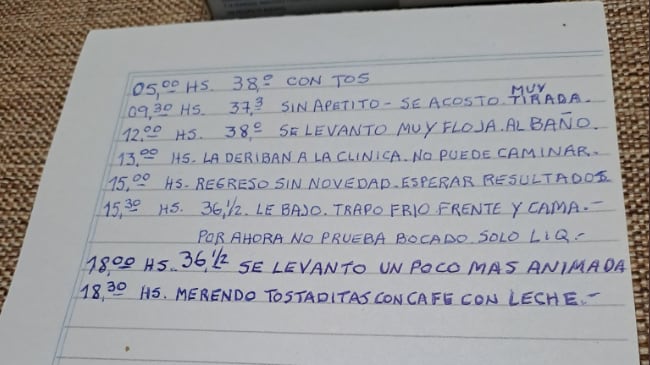 05,00 HS. 38,0 CON TOS
09,30 HS. 37,3 SIN APETITO - SE ACOSTO MUY TIRADA.
12,00 HS. 38,0 SE LEVANTO MUY FLOJA. AL BAÑO.
13,00 HS. LA DERIBAN A LA CLINICA. NO PUEDE CAMINAR.
15,00 HS. REGRESO SIN NOVEDAD. ESPERAR RESULTADOS
15,30 HS. 36,1/2. LE BAJO. TRAPO FRIO FRENTE Y CAMA.-
POR AHORA NO PRUEBA BOCADO. SOLO LIQ.-
18,00 HS.. 36,1/2 SE LEVANTO UN POCO MAS ANIMADA
18,30 HS. MERENDO TOSTADITAS CON CAFE CON LECHE.-